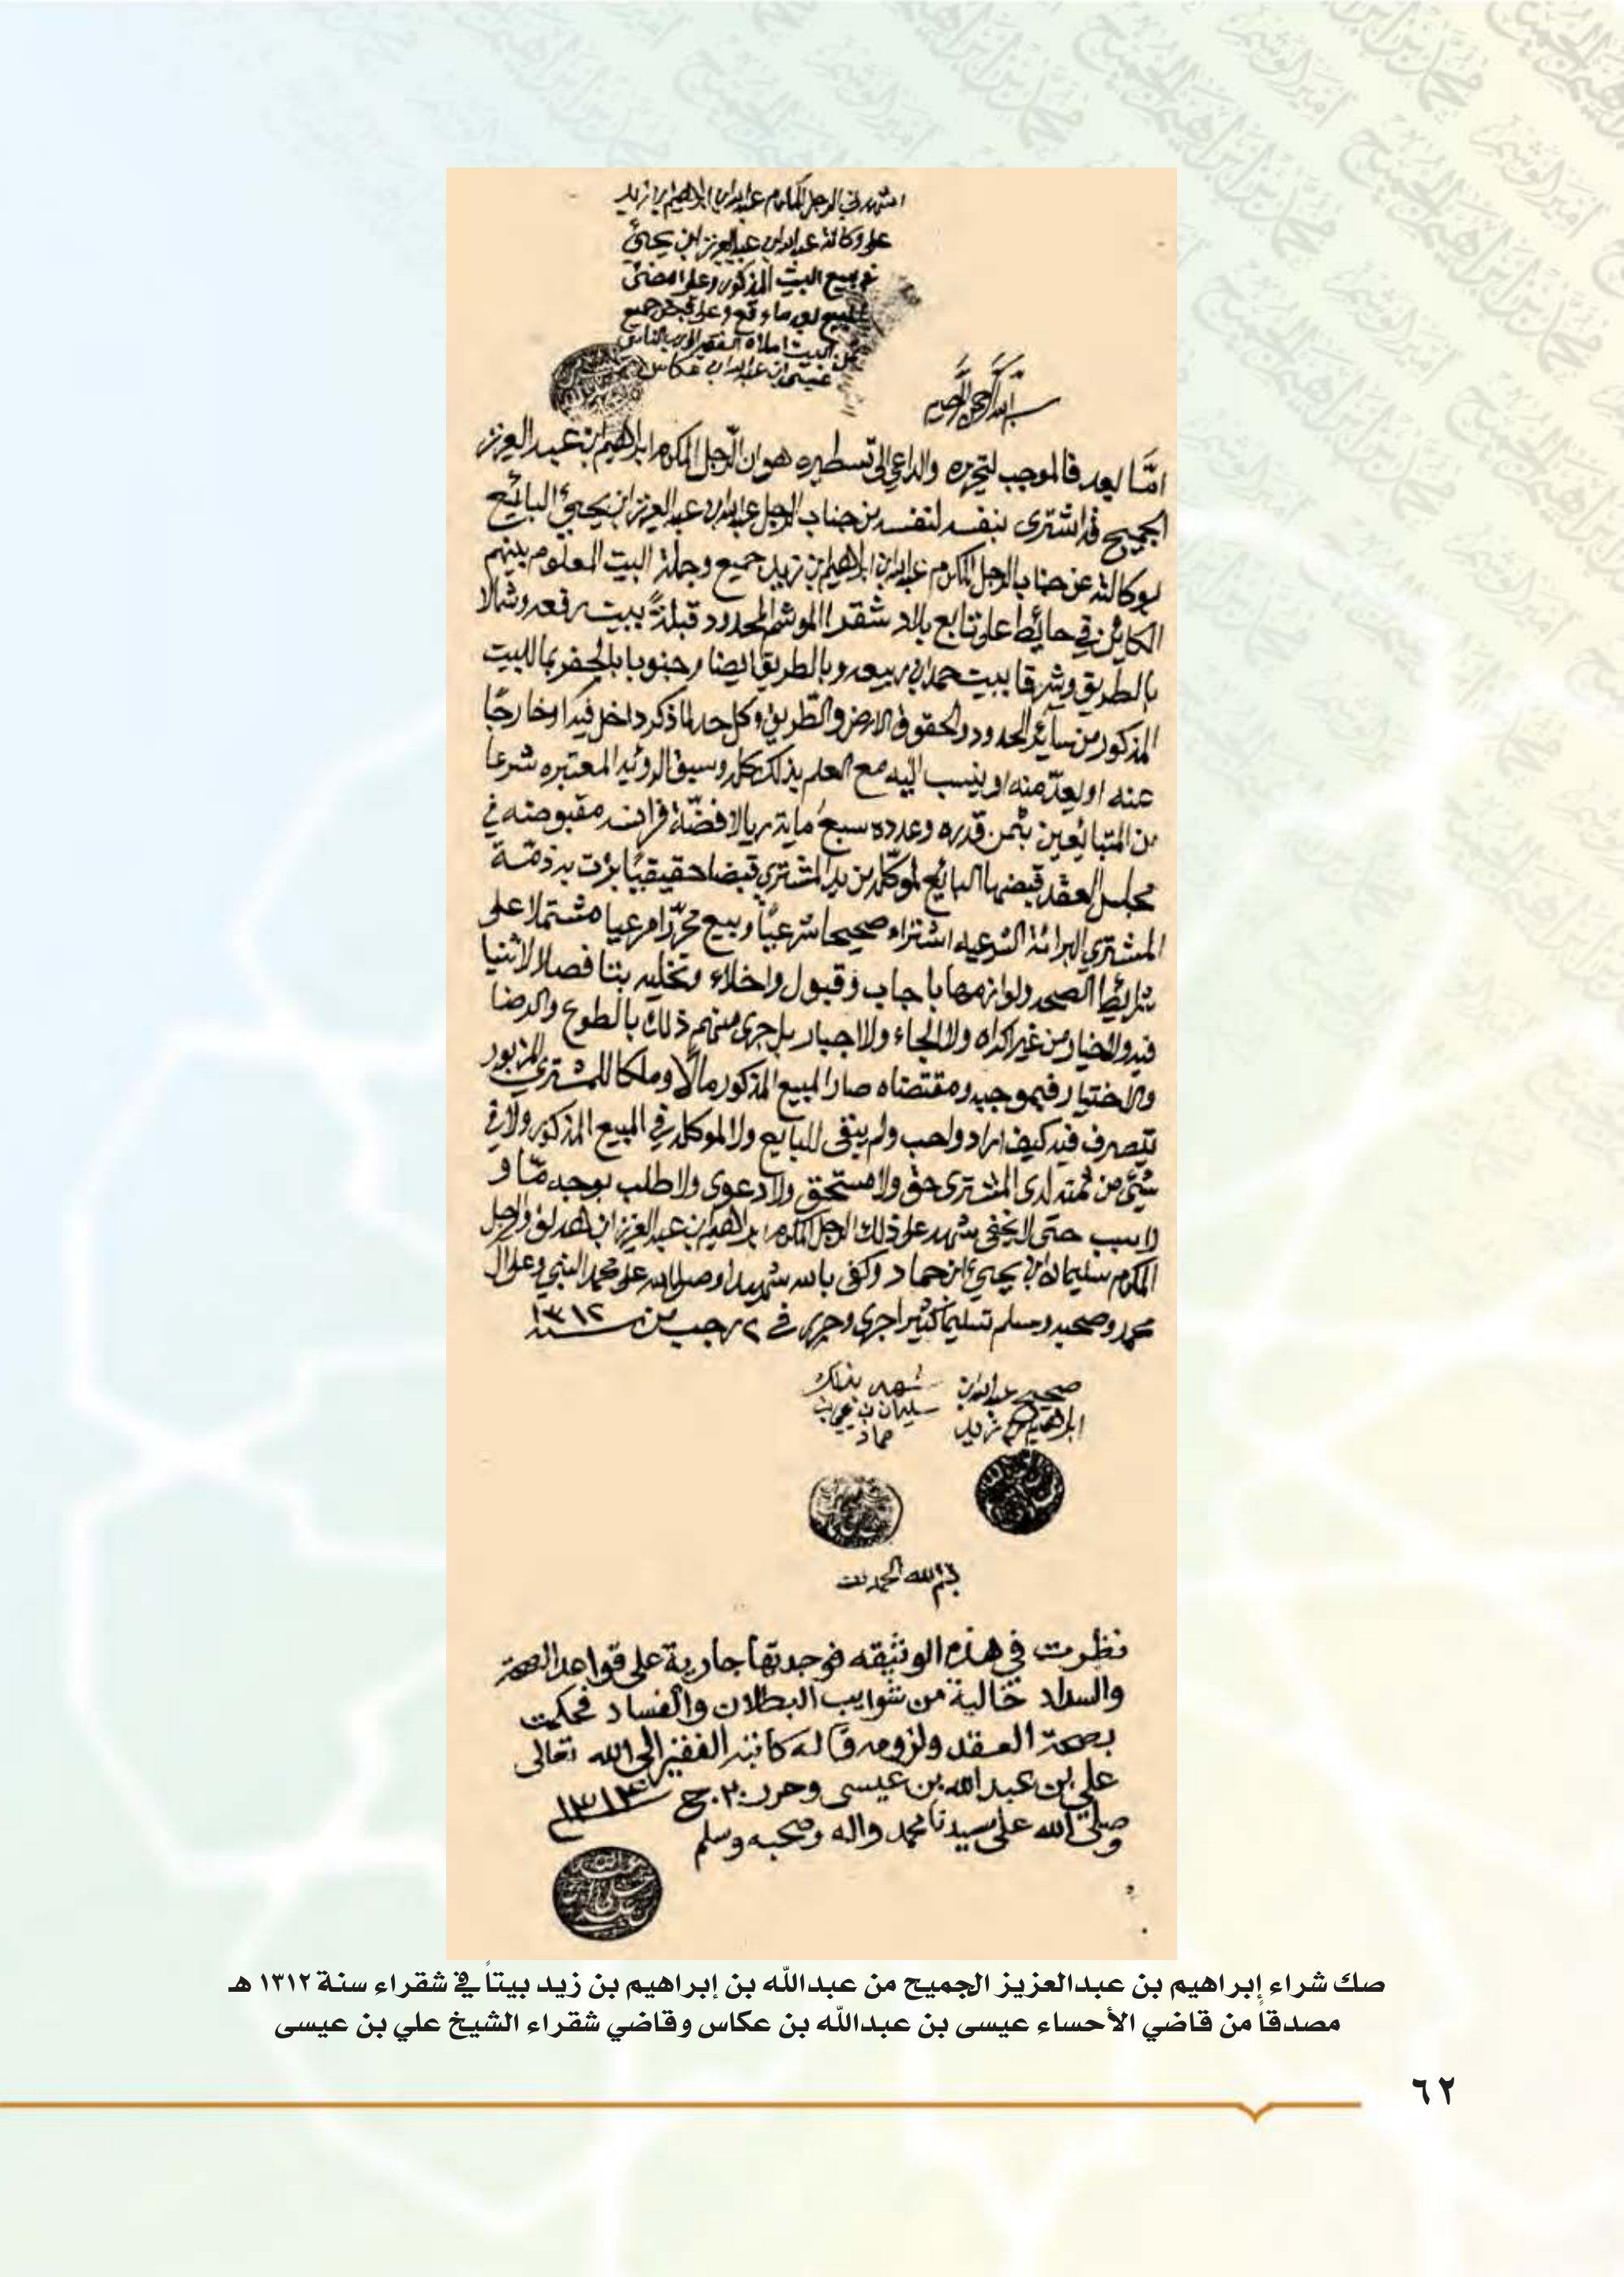 اشهدني الرجل المكرم عبدالله ابن ابراهيم بن زيد
على وكالة عبدالله ابن عبدالعزيز ابن يحيى
في بيع البيت المذكور وعلى امضى
البيع وقع وعلى قبض جميع
البيت املاه الفقير
عيسى ابن عبدالله ابن عكاس
بسم الله الرحمن الرحيم
امّا بعد فالموجب لتحريره والداعي الى تسطيره هو ان الرجل المكرم ابراهيم ابن عبدالعزيز
الجميح قد اشترى بنفسه لنفسه من جناب الرجل عبدالله ابن عبدالعزيز ابن يحيى البائع
بوكالته عن جناب الرجل المكرم عبدالله ابن ابراهيم بن زيد جميع وجملة البيت المعلوم بينهم
الكائن في حائط تابع بلاد شقرا الوشم المحدود قبلةً ببيت وشمالا
بالطريق وشرقا ببيت حمد ابن ربيعه وبالطريق ايضا وجنوبا بالحفر بما للبيت
المذكور من سائر الحدود والحقوق والارض والطريق وكل حد لما ذكر داخل فيه او خارجًا
عنه او يعدّ منه او ينسب اليه مع العلم بذلك كله وسبق الرؤيه المعتبره شرعا
من المتبائعين بثمن قدره وعدده سبع ماية ريالا فضّة فرانسه مقبوضه في
مجلس العقد قبضها البائع لموكله من يد المشتري قبضا حقيقيًا برئت به ذمّة
المشتري البرائة الشرعيه اشتراء صحيحا شرعيًا وبيع محرّرا مرعيا مشتملا على
شرائط الصحه ولوازمها باجاب وقبول واخلاء وتخليه بتا فصلا لا ثنيا
فيه ولا خيار من غير اكراه ولا الجاء ولا اجبار بل جرى منهم ذلك بالطوع والرضا
والاختيار فبموجبه ومقتضاه صار المبيع المذكور مالًا وملكا للمشتري المزبور
يتصرف فيه كيف اراد واحب ولم يبقى للبايع ولا لموكله في المبيع المذكور ولا في
شيء من قيمته لدى المشتري حق ولا مستحق ولا دعوى ولا طلب بوجه مّا و
لا سبب حتى لا يخفى شهد على ذلك الرجل المكرم ابراهيم بن عبدالعزيز ابن هدلق والرجل
المكرم سليمان ابن يحيى ابن حماد وكفى بالله شهيدا وصلى الله على محمد النبي وعلى ال
محمد وصحبه وسلم تسليما كثيرا جرى وحرر في ٢ رجب من سنة ١٣١٢
صحيح عبدالله ابن
ابراهيم بن زيد
شهد بذلك
سليمان بن يحيى بن
حماد
بسم الله الحمد لله
نظرت في هذه الوثيقه فوجدتها جارية على قواعد الصحة
والسداد خالية من شوايب البطلان والفساد فحكمت
بصحة العقد ولزومه قاله كاتبه الفقير الى الله تعالى
علي بن عبدالله بن عيسى وحرر ٢٠ ج
وصلى الله على سيدنا محمد واله وصحبه وسلم
صك شراء إبراهيم بن عبدالعزيز الجميح من عبدالله بن إبراهيم بن زيد بيتاً في شقراء سنة ١٣١٢ هـ
مصدقاً من قاضي الأحساء عيسى بن عبدالله بن عكاس وقاضي شقراء الشيخ علي بن عيسى
٦٢